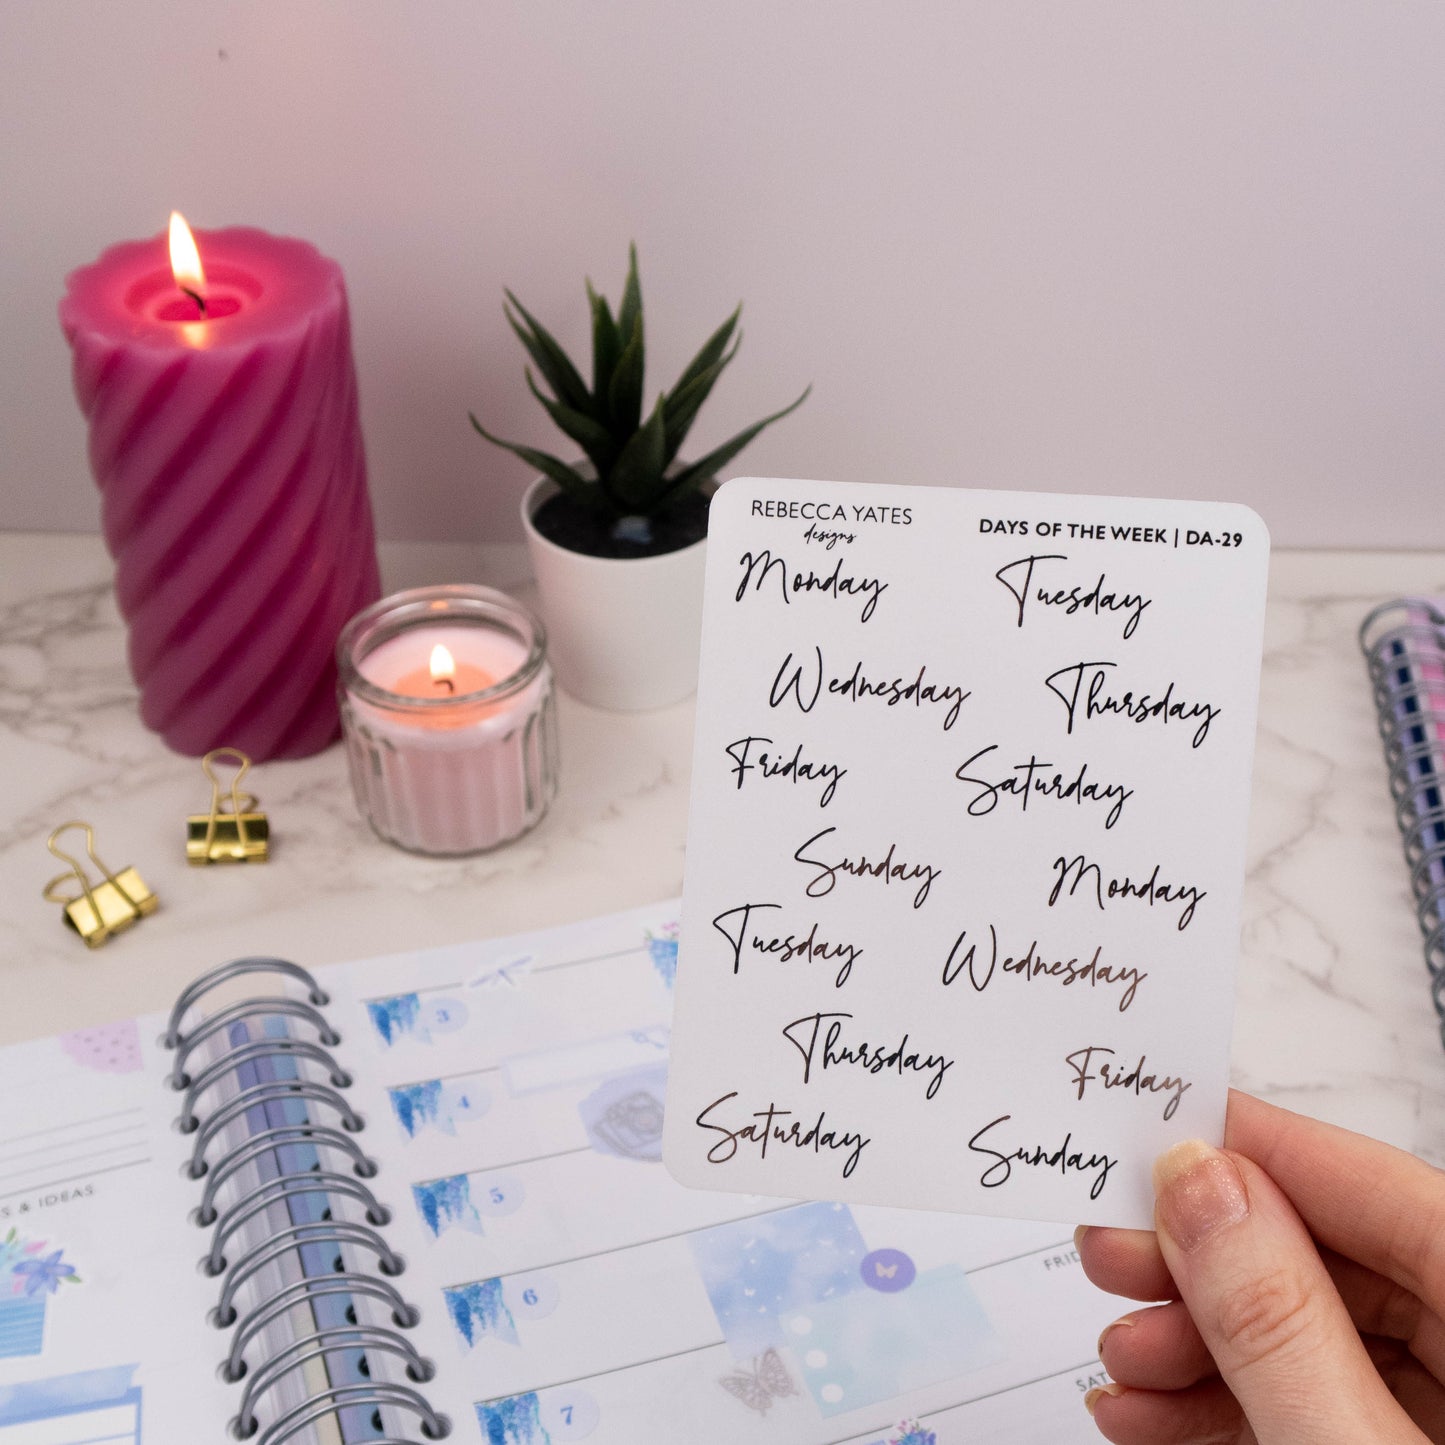 REBECCA YATES
designs
DAYS OF THE WEEK | DA-29
Monday Tuesday
Wednesday Thursday
Friday Saturday
Sunday Monday
Tuesday Wednesday
Thursday Friday
Saturday Sunday
3
4
5
6
7
S & IDEAS
FRID
SAT